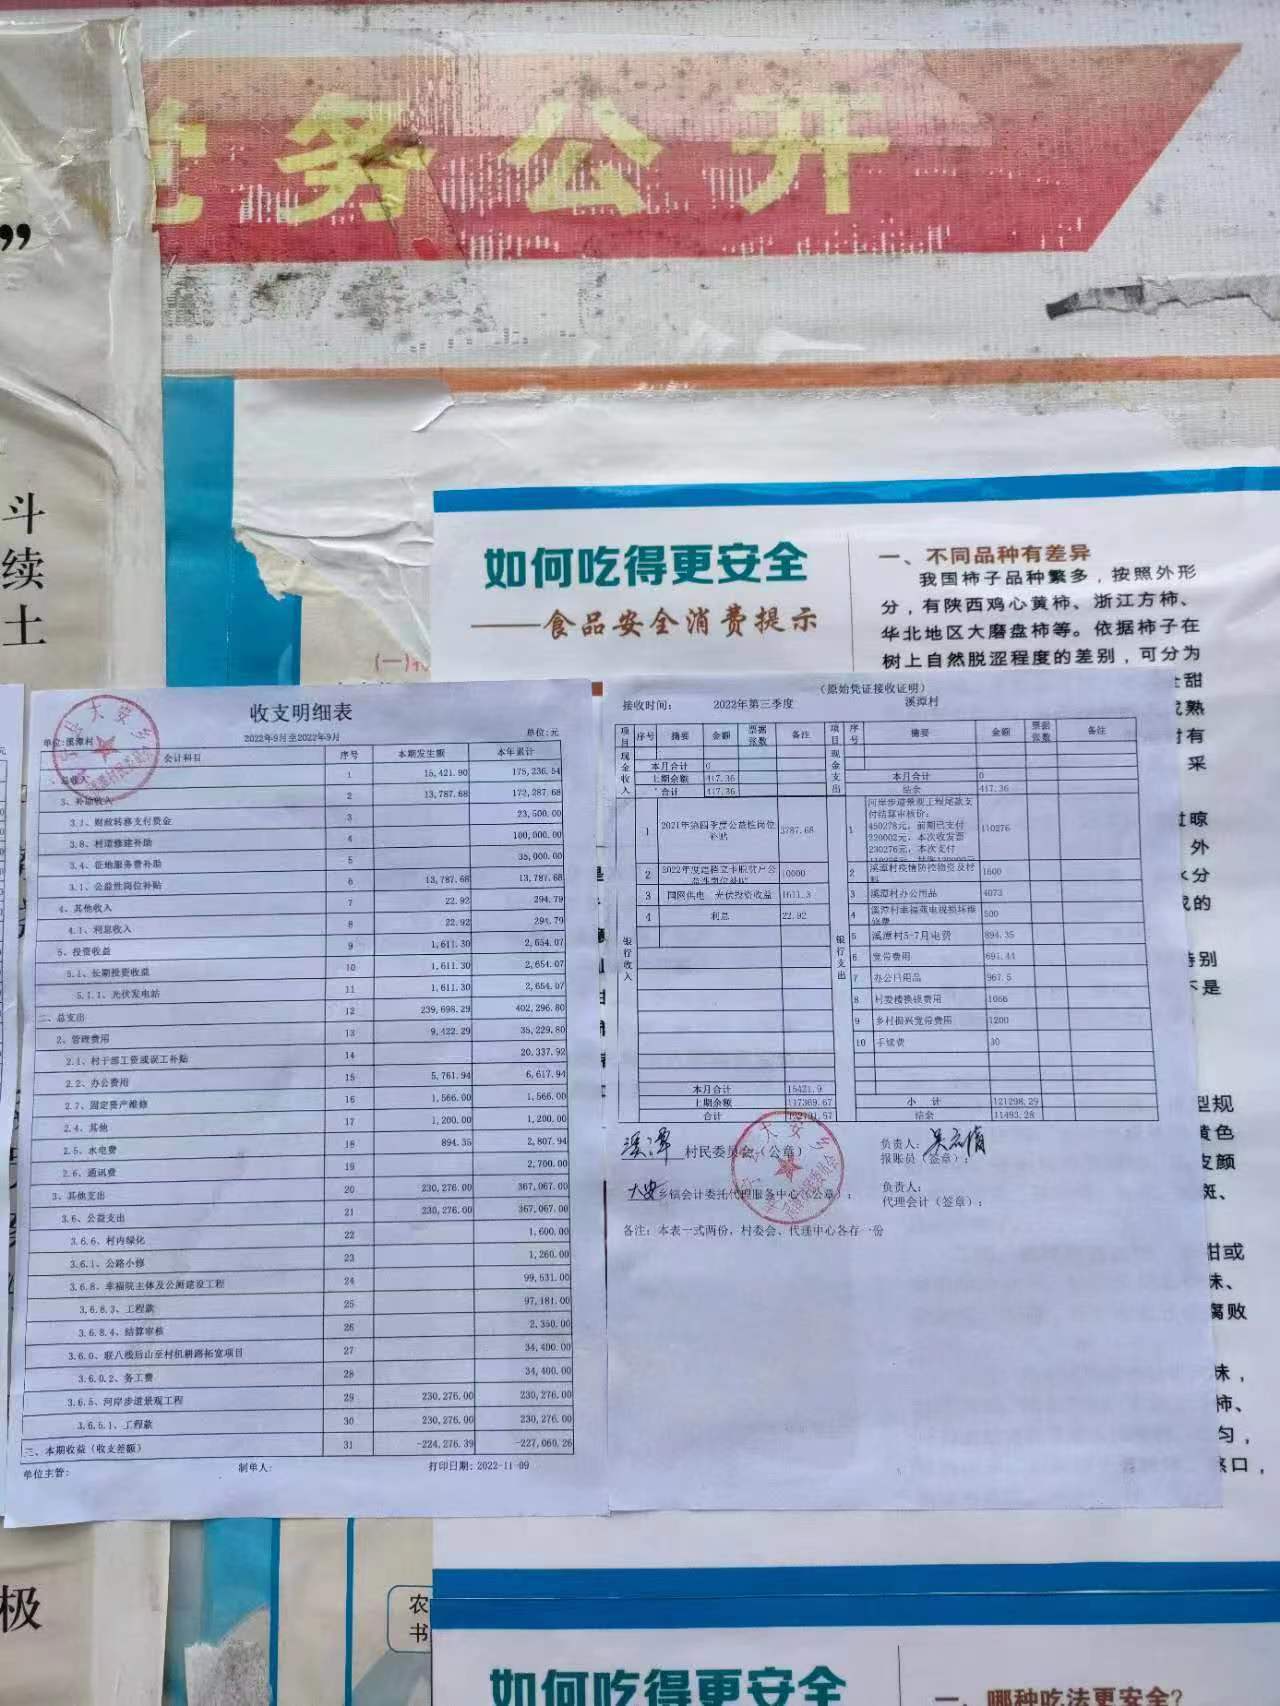 党务公开
”
斗
续
土
极
如何吃得更安全
——食品安全消费提示
一、不同品种有差异
我国柿子品种繁多，按照外形
分，有陕西鸡心黄柿、浙江方柿、
华北地区大磨盘柿等。依据柿子在
树上自然脱涩程度的差别，可分为
甜
成熟
有
采
晾
外
水分
成的
特别
不是
型规
黄色
皮颜
斑、
甜或
味、
腐败
味，
柿、
匀，
涩口，
收支明细表
单位:溪潭村 2022年9月至2022年9月 单位:元
会计科目 序号 本期发生额 本年累计
一、总收入 1 15,421.90 175,236.54
3、补助收入 2 13,787.68 172,287.68
3.1、财政转移支付资金 3 23,500.00
3.8、村道修建补助 4 100,000.00
3.4、征地服务费补助 5 35,000.00
3.1、公益性岗位补贴 6 13,787.68 13,787.68
4、其他收入 7 22.92 294.79
4.1、利息收入 8 22.92 294.79
5、投资收益 9 1,611.30 2,654.07
5.1、长期投资收益 10 1,611.30 2,654.07
5.1.1、光伏发电站 11 1,611.30 2,654.07
二、总支出 12 239,698.29 402,296.80
2、管理费用 13 9,422.29 35,229.80
2.1、村干部工资或误工补贴 14 20,337.92
2.2、办公费用 15 5,761.94 6,617.94
2.7、固定资产维修 16 1,566.00 1,566.00
2.4、其他 17 1,200.00 1,200.00
2.5、水电费 18 894.35 2,807.94
2.6、通讯费 19 2,700.00
3、其他支出 20 230,276.00 367,067.00
3.6、公益支出 21 230,276.00 367,067.00
3.6.6、村内绿化 22 1,600.00
3.6.1、公路小修 23 1,260.00
3.6.8、幸福院主体及公厕建设工程 24 99,531.00
3.6.8.3、工程款 25 97,181.00
3.6.8.4、结算审核 26 2,350.00
3.6.0、联八栈后山至村机耕路拓宽项目 27 34,400.00
3.6.0.2、务工费 28 34,400.00
3.6.5、河岸步道景观工程 29 230,276.00 230,276.00
3.6.5.1、工程款 30 230,276.00 230,276.00
三、本期收益(收支差额) 31 -224,276.39 -227,060.26
单位主管: 制单人: 打印日期: 2022-11-09
（原始凭证接收证明）
接收时间： 2022年第三季度 溪潭村
项目 序号 摘要 金额 票据张数 备注 项目 序号 摘要 金额 票据张数 备注
现金收入 现金支出
本月合计 0 本月合计 0
上期余额 417.36 结余 417.36
合计 417.36
银行收入
1 2021年第四季度公益性岗位补贴 3787.68
2 2022年度建档立卡脱贫户公益性岗位补贴 10000
3 国网供电 光伏投资收益 1611.3
4 利息 22.92
本月合计 15421.9
上期余额 117369.67
合计 132791.57
银行支出
1 河岸步道景观工程尾款支付结算审核价：450278元，前期已支付220002元，本次收发票230276元，本次支付 110276
2 溪潭村疫情防控物资及材料 1600
3 溪潭村办公用品 4073
4 溪潭村幸福苑电视损坏维修费 500
5 溪潭村5-7月电费 894.35
6 宽带费用 691.44
7 办公日用品 967.5
8 村委楼换锁费用 1066
9 乡村振兴宽带费用 1200
10 手续费 30
小 计 121298.29
结余 11493.28
溪潭 村民委员会（公章） 负责人：
报账员（签章）：
大安乡镇会计委托代理服务中心（公章）： 负责人：
代理会计（签章）：
备注：本表一式两份，村委会、代理中心各存一份
农
书
如何吃得更安全
一、哪种吃法更安全?